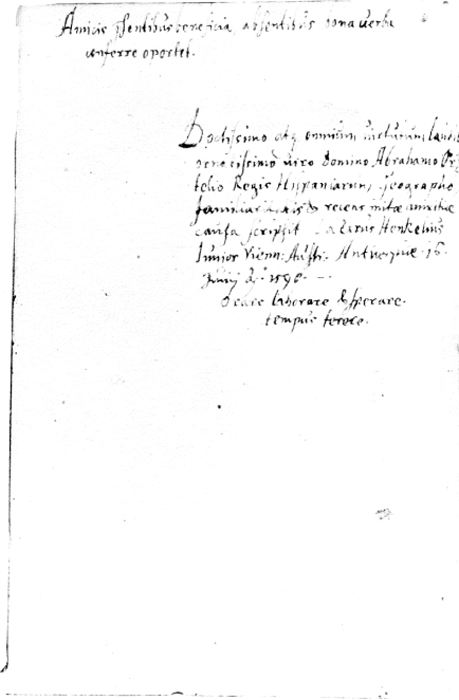 Amicis p̄sentibus beneficia, absentibus bona verba
conferre oportet.
Doctissimo atq omnium virtutum laudi
viro Domino Abrahamo Or
telio Regis Hispaniarum, Geographo
& recens initæ amicitiæ
causa scripsit Lazarus Henkelius
Iunior Vienn: Austr. Antverpiæ 16
Junij A° 1590.
Orare laborare & sperare.
tempus